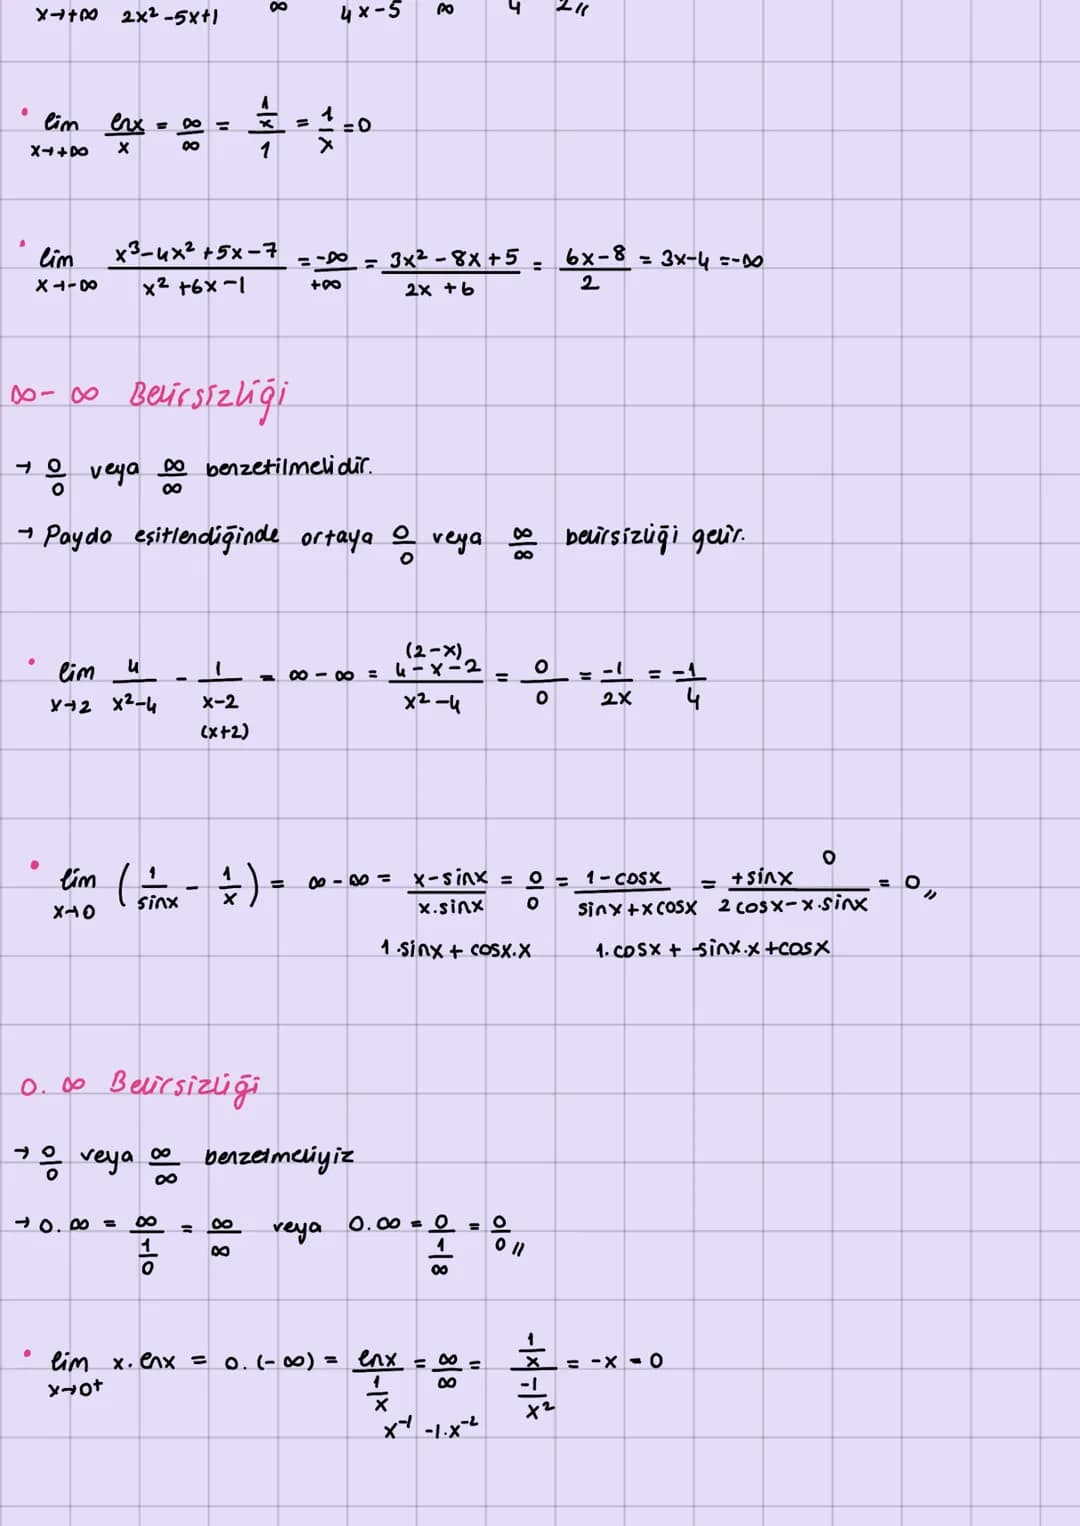 x→+∞ 2x²-5x+1 ∞ 4x-5 ∞ 4 2,,
• lim x→+∞ lnx/x = ∞/∞ = (1/x)/1 = 1/x = 0
• lim x→-∞ (x³-4x²+5x-7)/(x²+6x-1) = -∞/+∞ = (3x²-8x+5)/(2x+6) = (6x-8)/2 = 3x-4 = -∞
∞-∞ Belirsizliği
→ 0/0 veya ∞/∞ benzetilmelidir.
→ Payda eşitlendiğinde ortaya 0/0 veya ∞/∞ belirsizliği gelir.
(2-x)
• lim x→2 4/(x²-4) - 1/(x-2) = ∞-∞ = (4-x-2)/(x²-4) = 0/0 = -1/2x = -1/4
(x+2)
0
• lim x→0 (1/sinx - 1/x) = ∞-∞ = (x-sinx)/(x.sinx) = 0/0 = (1-cosx)/(sinx+xcosx) = (+sinx)/(2cosx-x.sinx) = 0,,
1.sinx + cosx.x 1.cosx + -sinx.x +cosx
0.∞ Belirsizliği
→ 0/0 veya ∞/∞ benzetmeliyiz
→ 0.∞ = ∞/(1/0) = ∞/∞ veya 0.∞ = 0/(1/∞) = 0/0,,
• lim x→0⁺ x.lnx = 0.(-∞) = lnx/(1/x) = ∞/∞ = (1/x)/(-1/x²) = -x = 0
x⁻¹ -1.x⁻²